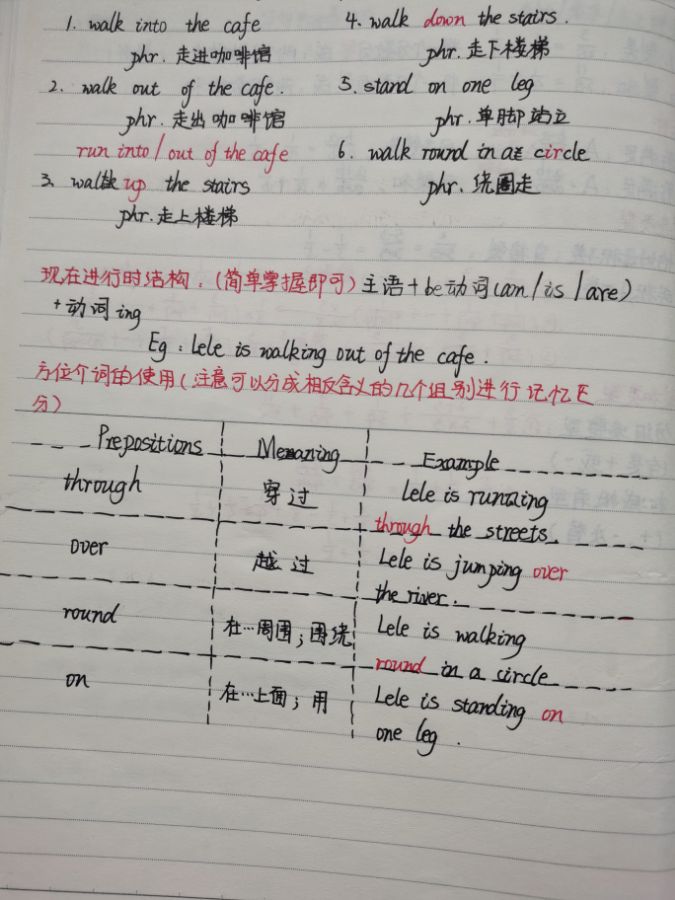 1. walk into the cafe
phr. 走进咖啡馆
2. walk out of the cafe.
phr. 走出咖啡馆
run into / out of the cafe
3. walk up the stairs
phr. 走上楼梯
4. walk down the stairs.
phr. 走下楼梯
5. stand on one leg
phr. 单脚站立
6. walk round in a circle
phr. 绕圈走
现在进行时结构.(简单掌握即可)主语+be动词(am/is/are)
+动词ing
Eg: Lele is walking out of the cafe.
方位介词的使用(注意可以分成相反含义的几个组别进行记忆区
分)
Prepositions Meaning Example
through 穿过 Lele is running
through the streets.
over 越过 Lele is jumping over
the river.
round 在…周围;围绕 Lele is walking
round in a circle
on 在…上面;用 Lele is standing on
one leg.